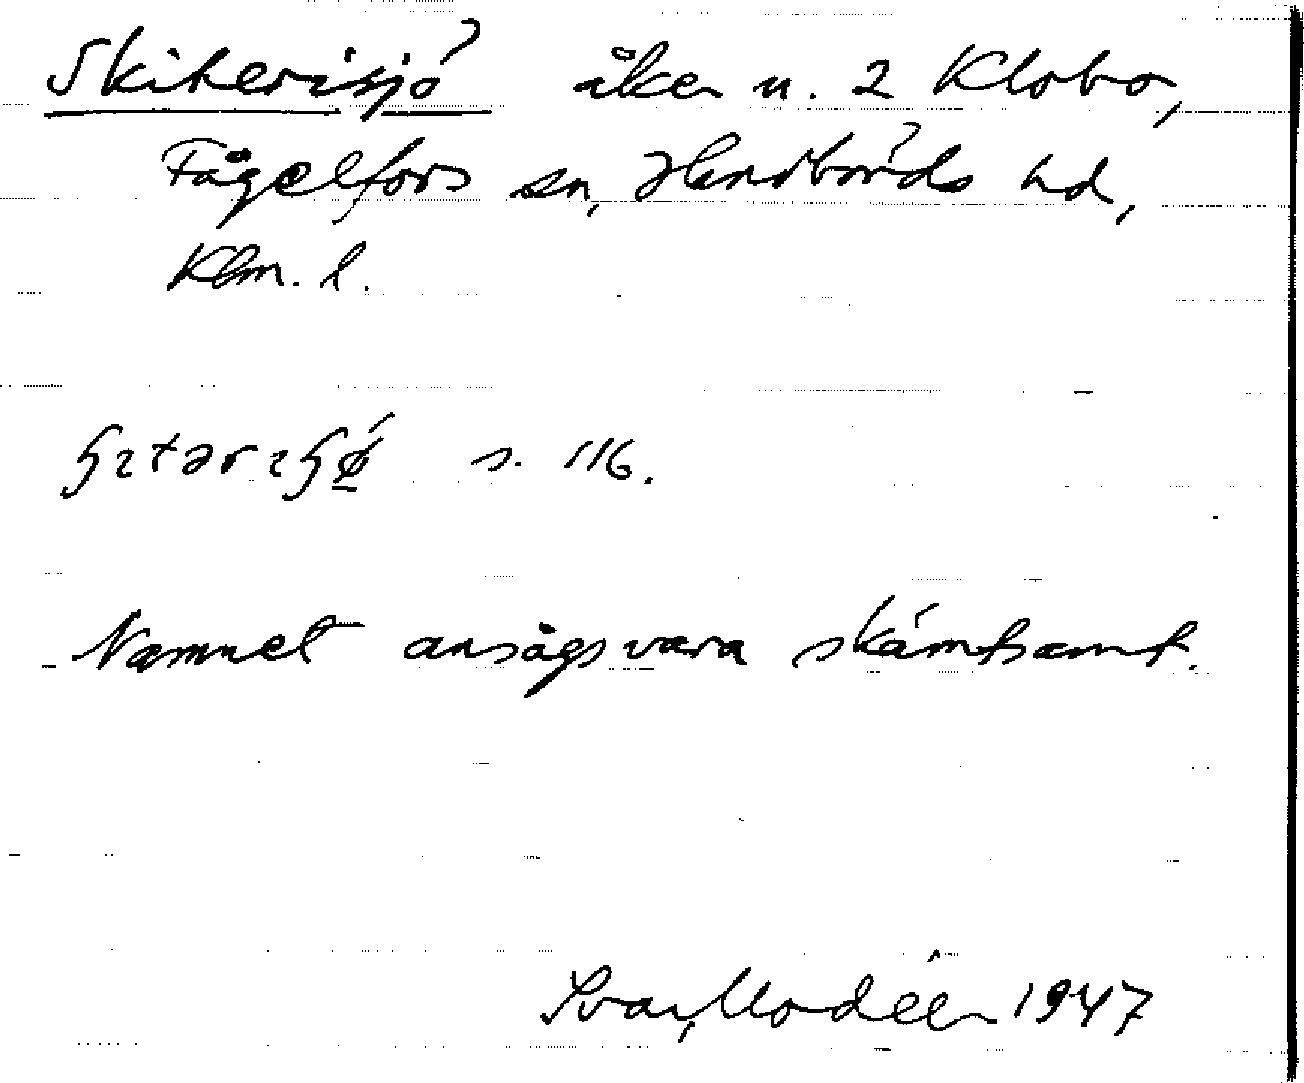 Skiterisjö åker n. 2 Klobo,
Fågelfors sn, Handbörds hd,
Klm. l.
s. 116.
Namnet ansågs vara skämtsamt.
Ivar Modéer 1947